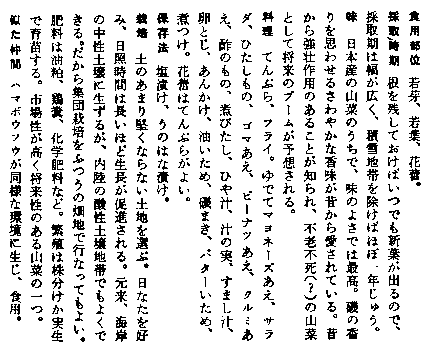 食用部位　若芽、若葉、花蕾。
採取時期　根を残しておけばいつでも新葉が出るので、
採取期は幅が広く、積雪地帯を除けばほぼ一年じゅう。
味　日本産の山菜のうちで、味のよさでは最高。磯の香
りを思わせるさわやかな香味が昔から愛されている。昔
から強壮作用のあることが知られ、不老不死(?)の山菜
として将来のブームが予想される。
料理　てんぷら、フライ。ゆでてマヨネーズあえ、サラ
ダ、ひたしもの、ゴマあえ、ピーナツあえ、クルミあ
え、酢のもの、煮びたし、ひや汁、汁の実、すまし汁、
卵とじ、あんかけ、油いため、磯まき、バターいため、
煮つけ。花蕾はてんぷらがよい。
保存法　塩漬け、うのはな漬け。
栽培　土のあまり堅くならない土地を選ぶ。日なたを好
み、日照時間は長いほど生長が促進される。元来、海岸
の中性土壌に生ずるが、内陸の酸性土壌地帯でもよくで
きる。だから集団栽培をふつうの畑地で行なってもよい。
肥料は油粕、鶏糞、化学肥料など。繁殖は株分けか実生
で育苗する。市場性が高く将来性のある山菜の一つ。
似た仲間　ハマボウフウが同様な環境に生じ、食用。